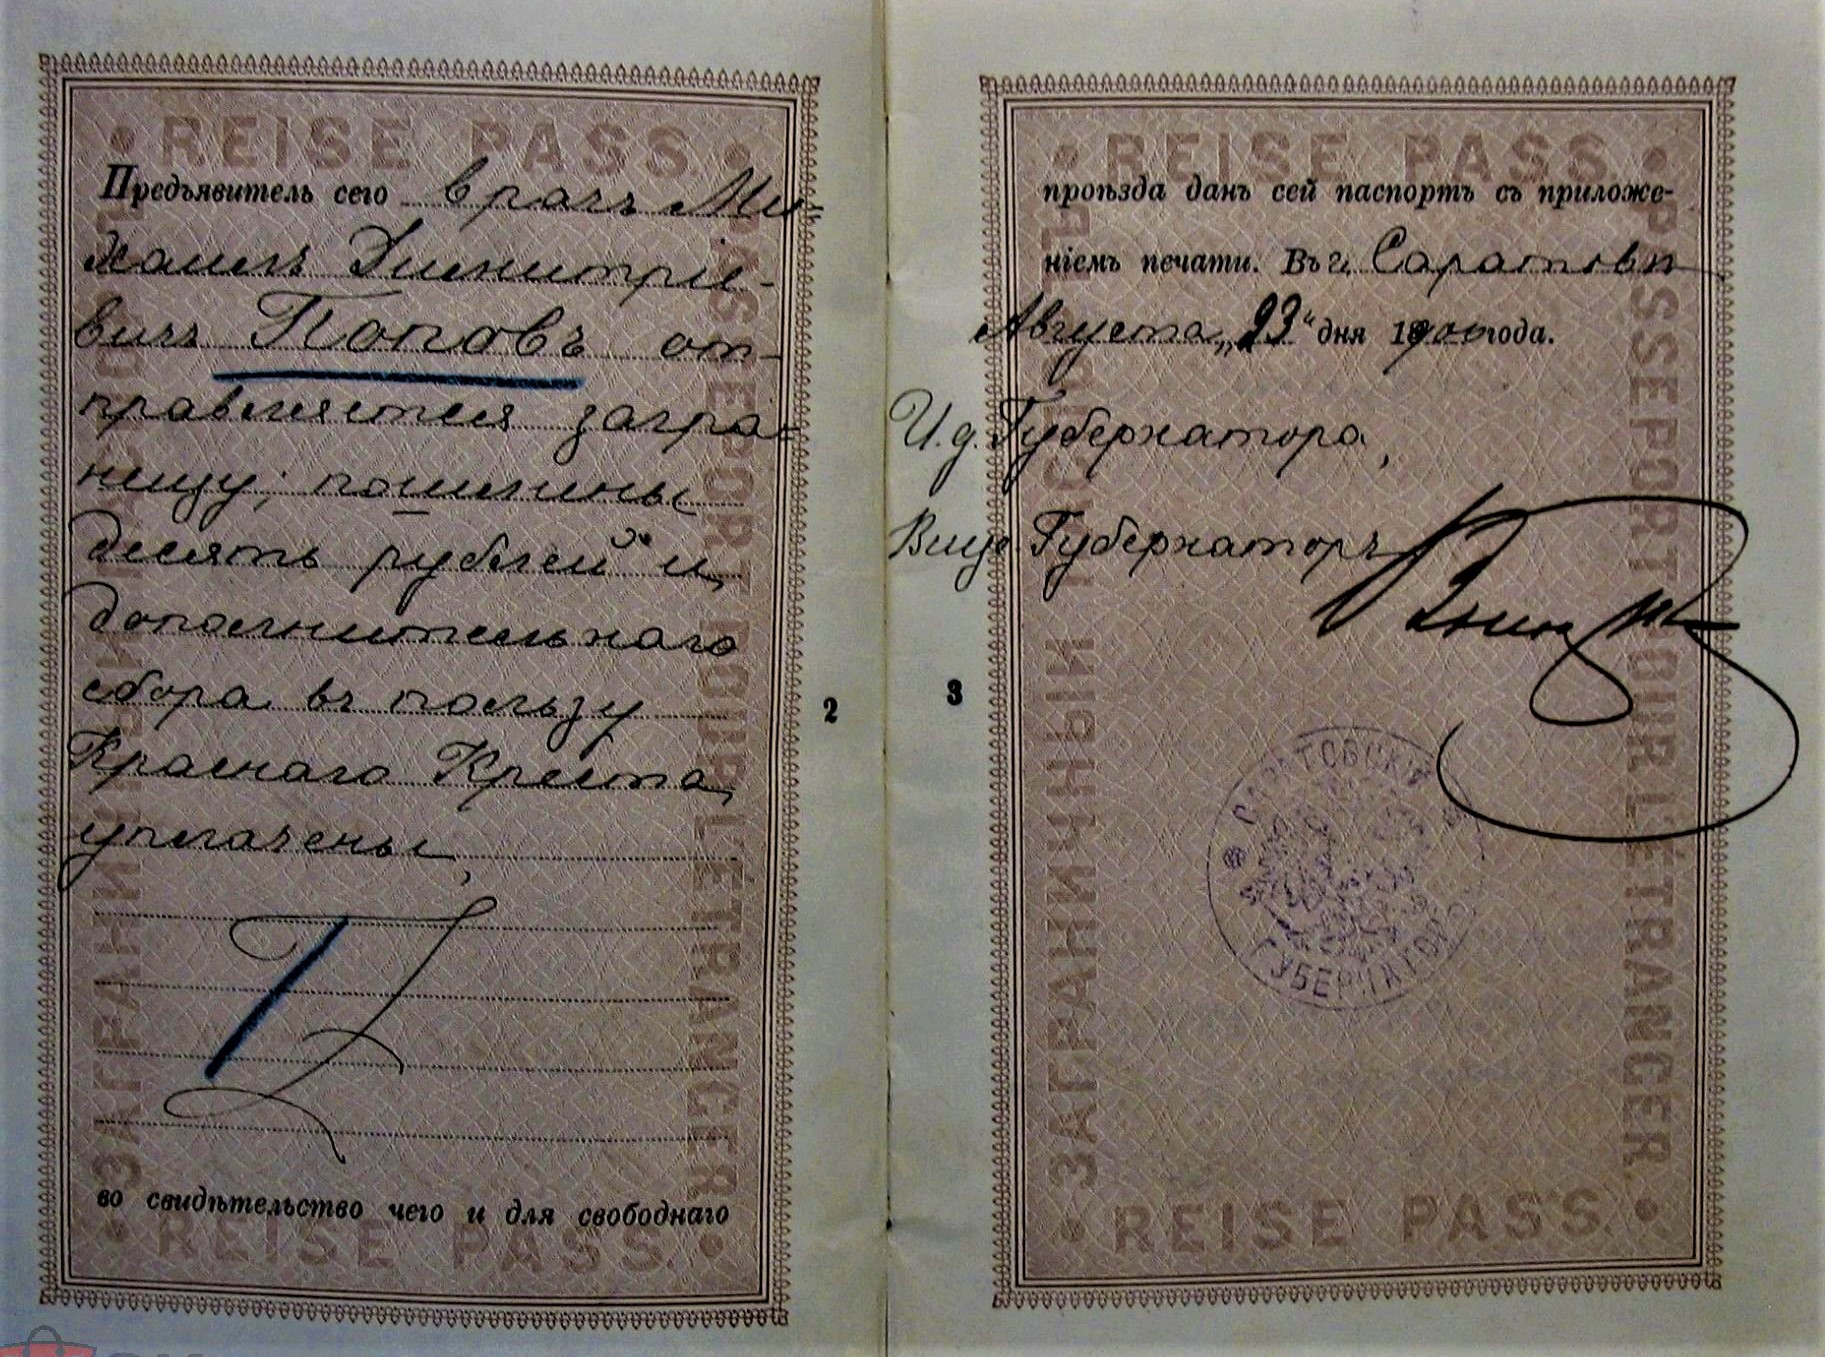 REISE PASS.
Предъявитель сего врачъ Ми-
хаилъ Дмитріе-
вичъ Поповъ от-
правляется загра-
ницу; пошлины
десять рублей и
дополнительнаго
сбора въ пользу
Краснаго Креста
уплачены,
во свидѣтельство чего и для свободнаго
REISE PASS.
ЗАГРАНИЧНЫЙ ПАСПОРТЪ
PASSEPORT POUR L'ÉTRANGER
2
REISE PASS.
проѣзда данъ сей паспортъ съ приложе-
ніемъ печати. Въ г. Саратовѣ
Августа „23“ дня 1900 года.
И. д. Губернатора,
Вице Губернаторъ
3
САРАТОВСКІЙ
ГУБЕРНАТОРЪ
REISE PASS.
ЗАГРАНИЧНЫЙ ПАСПОРТЪ
PASSEPORT POUR L'ÉTRANGER.